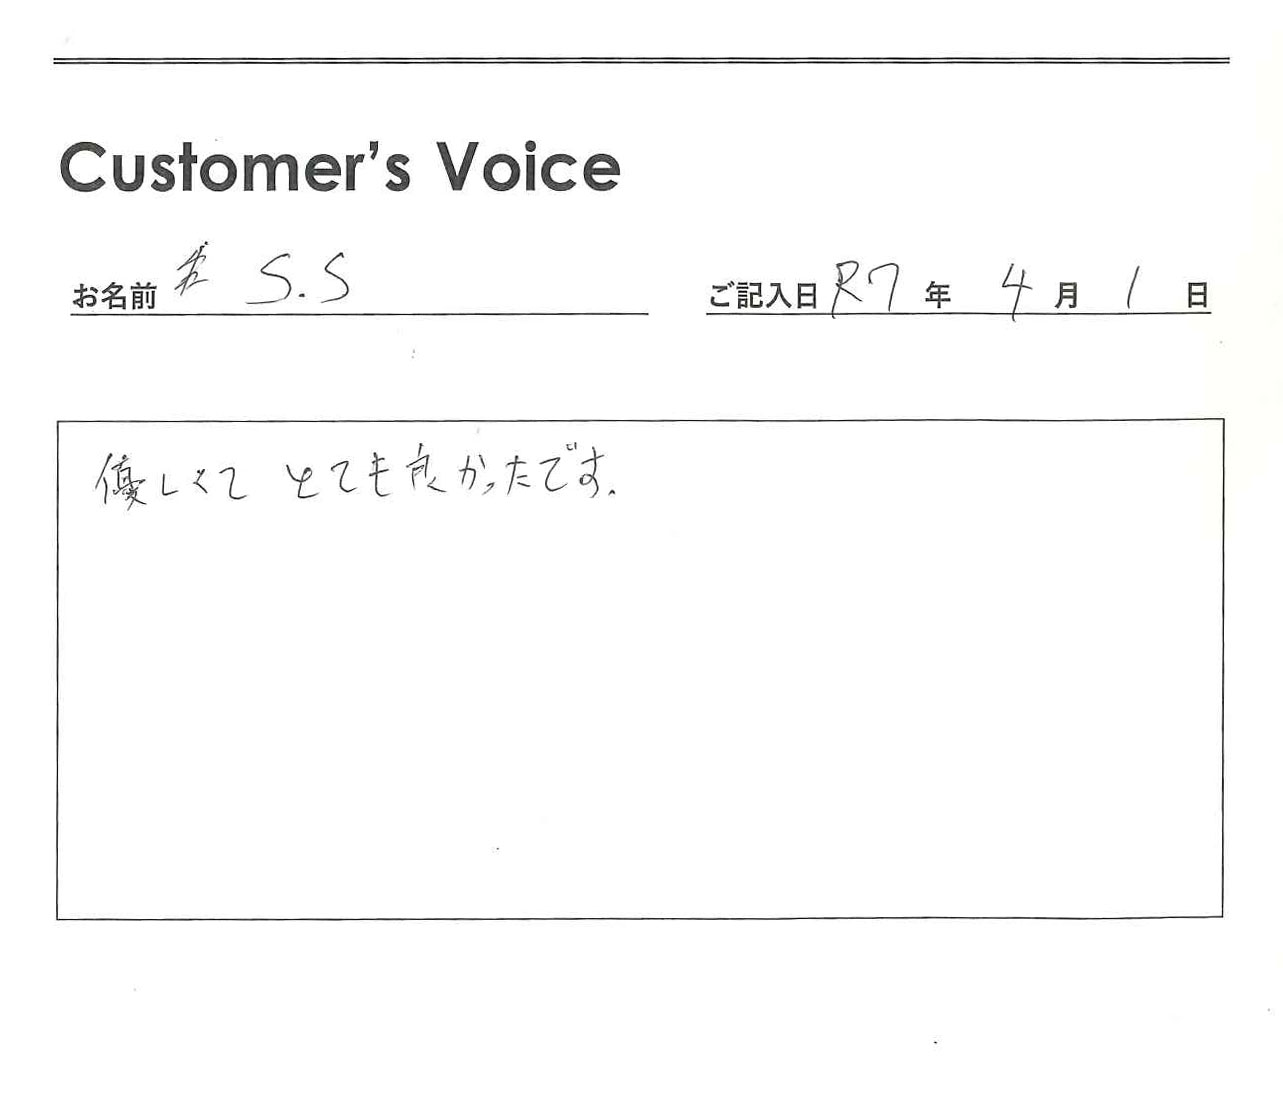 Customer's Voice
お名前 S.S ご記入日 R7 年 4 月 1 日
優しくて とても良かったです.